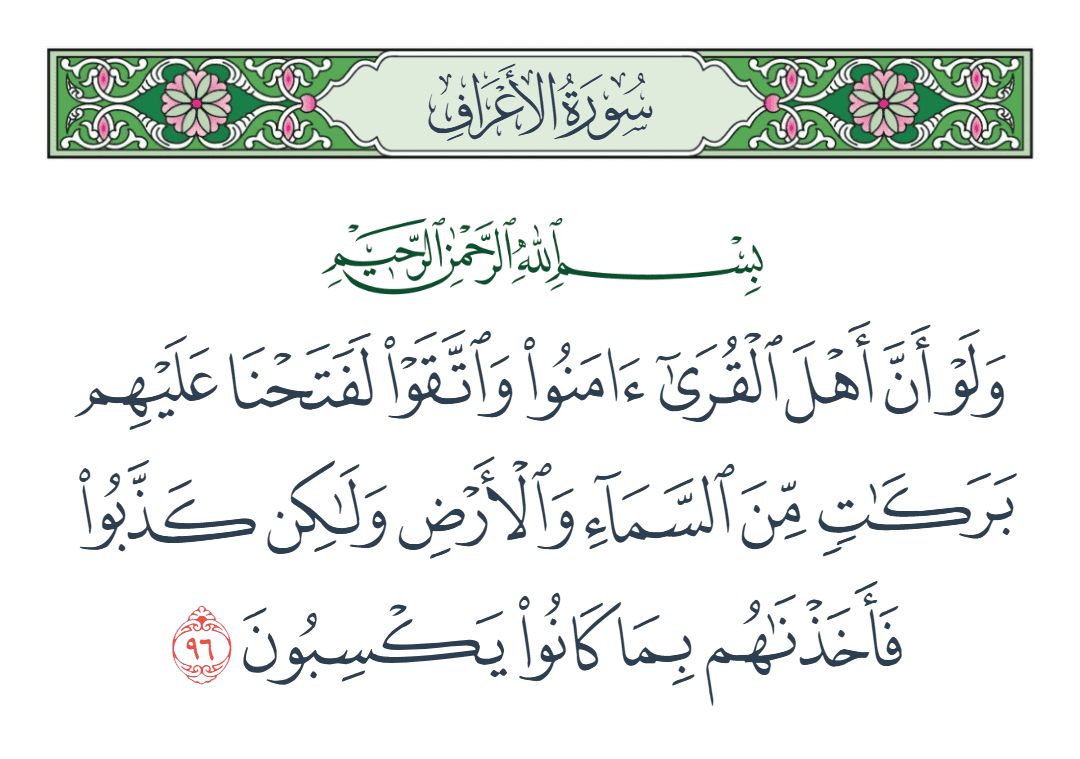 سُورَةُ الأَعْرَافِ
بِسْمِ ٱللَّهِ ٱلرَّحْمَٰنِ ٱلرَّحِيمِ
وَلَوْ أَنَّ أَهْلَ ٱلْقُرَىٰٓ ءَامَنُوا۟ وَٱتَّقَوْا۟ لَفَتَحْنَا عَلَيْهِم
بَرَكَٰتٍ مِّنَ ٱلسَّمَآءِ وَٱلْأَرْضِ وَلَٰكِن كَذَّبُوا۟
فَأَخَذْنَٰهُم بِمَا كَانُوا۟ يَكْسِبُونَ ٩٦